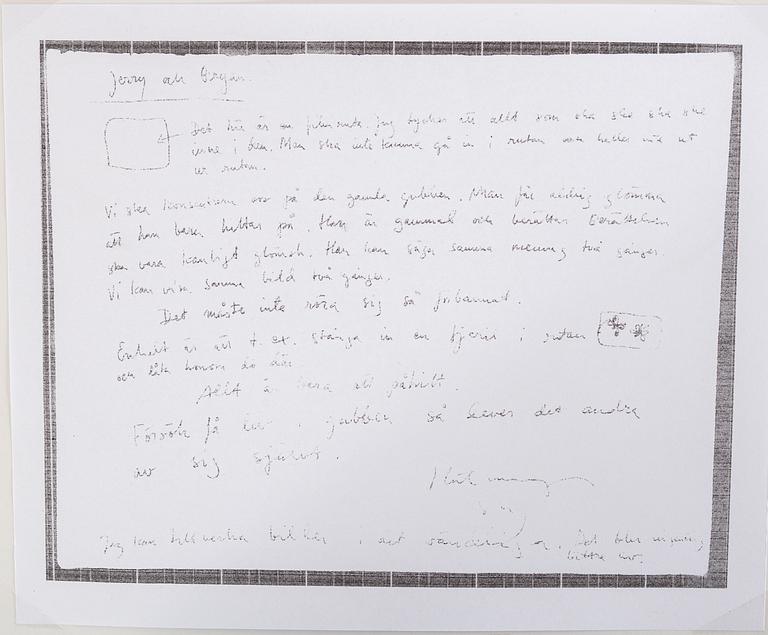 Jerry och Örjan.
Det här är en filmruta. Jag tycker att allt som ska ske ska ske
inne i den. Man ska inte kunna gå in i rutan och heller inte ut
ur rutan.
Vi ska koncentrera oss på den gamla gubben. Man får aldrig glömma
att han bara hittar på. Han är gammal och berättar. Berättelsen
ska vara konstigt glömsk. Han kan säga samma mening två gånger.
Vi kan visa samma bild två gånger.
Det måste inte röra sig så förbannat.
Enkelt är att t.ex. stänga in en fjäril i rutan
och låta honom dö där.
Allt är bara ett påhitt.
Försök få liv i gubben så lever det andra
av sig självt.
Jag kan tillverka bilder i det oändliga. Det blir
bättre